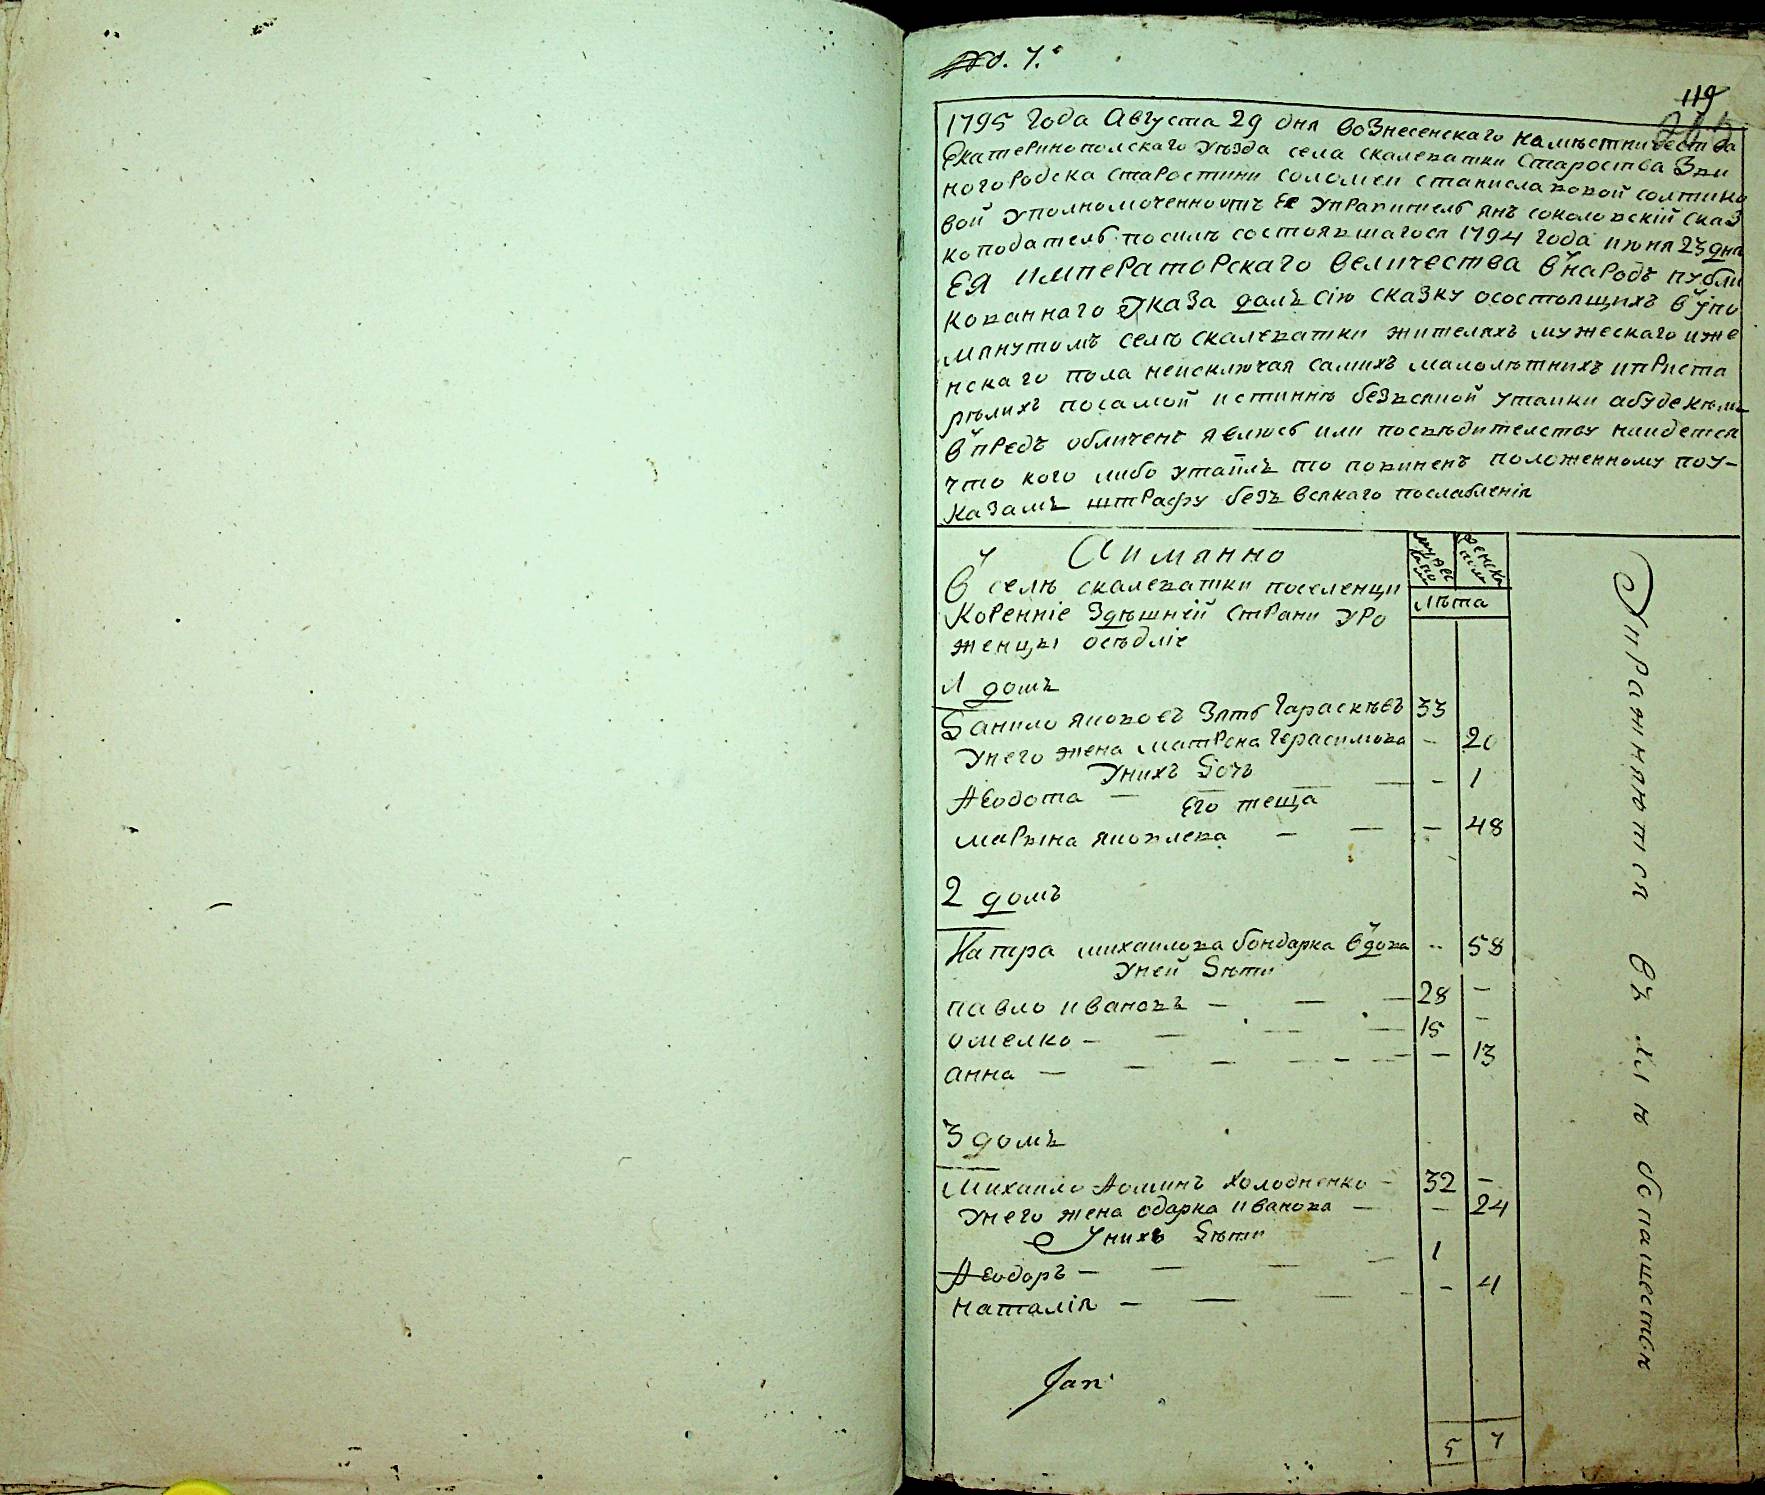 No. 7.
119
1795 Года Августа 29 дня Вознесенскаго намѣстничества
Екатеринополскаго Уѣзда села скалеватки Староства Зви
ногородска Старостини соломеи станиславовой солтико
вой Уполномоченно отъ Ее Управитель янъ соколовскій сказ
коподатель посилѣ состоявшагося 1794 года июня 23 дня
ЕЯ ИМПЕРАТОРСКАГО величества внародъ публи
кованнаго Указа далъ сію сказку осостоящихъ вупо
мянутомъ селѣ скалеватки жителяхъ мужескаго иже
нскаго пола неисключая самихъ малолѣтнихъ иприста
рѣлихъ посамой истиннѣ безвсякой утаики абуде кѣмъ
впредъ обличенъ явлюсь или посвѣдителству наидется
что кого либо утаилъ то повиненъ положенному поу-
казамъ штрафу безъ всякаго послабленія
Аимянно
В селѣ скалеватки поселенци
Коренніе Здѣшней Страни уро
женцы осѣдліе
мужеска пола
женска
лѣта
1 домъ
Данило яковоєъ Зять Гараскѣеъ 33
Унего жена матрона Герасимова - 20
Унихъ Дочъ
Ѳеодота - - 1
Его теща
марвина яковлева - - - 48
2 домъ
Катра михаилова бондарка вдова - 58
Уней Дѣти
павло ивановъ - - - 28 -
омелко - - - 15 -
анна - - - - 13
3 домъ
Михаило Ѳоминъ Холодненко - 32 -
Унего жена одарка иванова - - 24
Унихъ Дѣти
Ѳеодоръ - - - - 1
наталія - - - - 4
Jan
5 7
Упражняются въ хлѣбопашествѣ